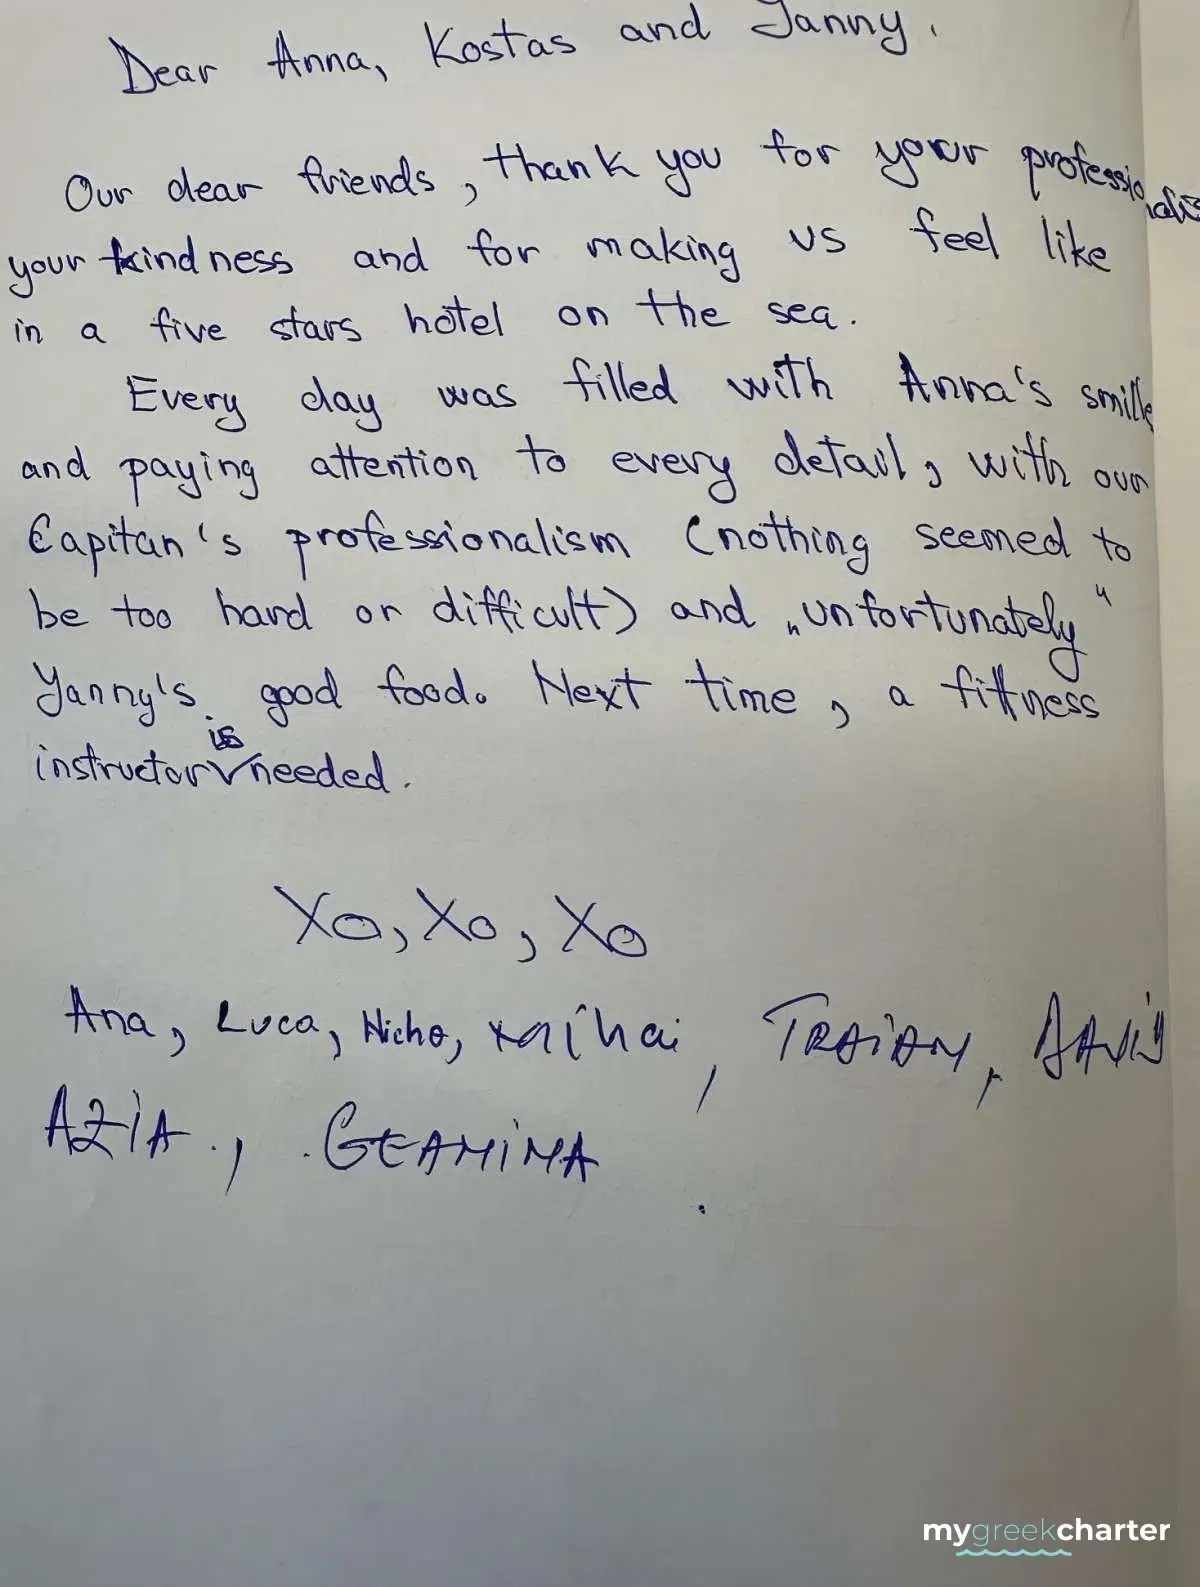 Dear Anna, Kostas and Yanny.
Our dear friends, thank you for your
your kindness and for making us feel like
in a five stars hotel on the sea.
Every day was filled with Anna's smille
and paying attention to every detail, with our
Capitan's professionalism (nothing seemed to
be too hard or difficult) and „unfortunately"
Yanny's good food. Next time, a fittness
instructor is needed.
Xo, Xo, Xo
Ana, Luca, Mihai, TRAIAN,
AZIA., GEAMINA
mygreekcharter